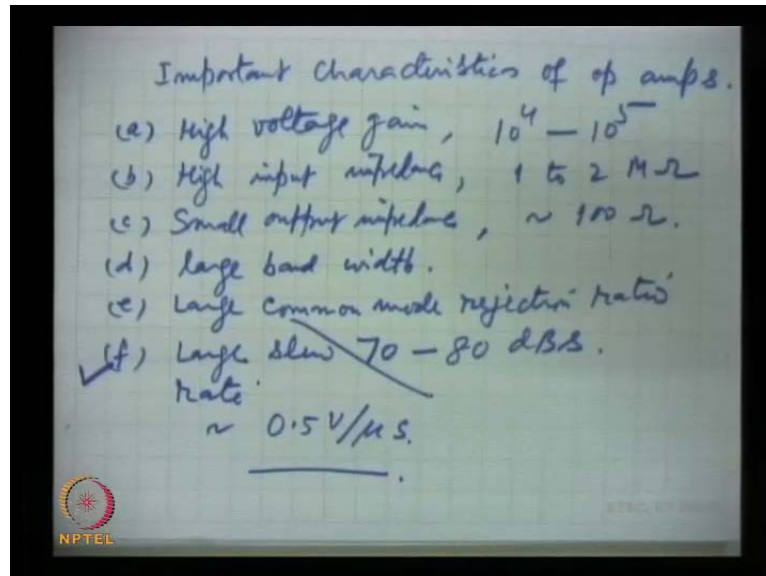 Important Characteristics of op amps.
(a) High voltage gain, 10⁴ — 10⁵
(b) High input impedance, 1 to 2 MΩ
(c) Small output impedance, ~ 100 Ω.
(d) large band width.
(e) Large common mode rejection ratio
(f) Large slew 70 – 80 dBs.
rate
~ 0.5 V/μs.
NPTEL